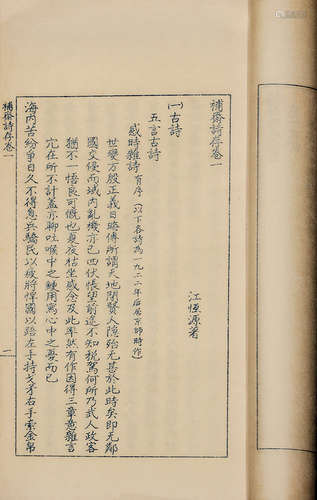 補齋詩存卷一
江恆源著
(一)古詩
五言古詩
感時雜詩 有序(以下各詩為一九二二年后居京師時作)
世變万殷正義日晦傳所謂天地閉賢人隱殆尤甚於此時矣即无鄰
國交侵而域內亂機亦已四伏悵望前途不知稅駕何所乃武人政客
猶不一悟良可慨也夏夜枯坐感念及此率然有作因得三章意雜言
冗在所不計蓋亦聊吐喉中之鯁用寫心中之憂而已
海內苦紛爭日久不得息兵驕民以疲將悍國以踣左手持戈矛右手索金帛
補齋詩存卷一
一